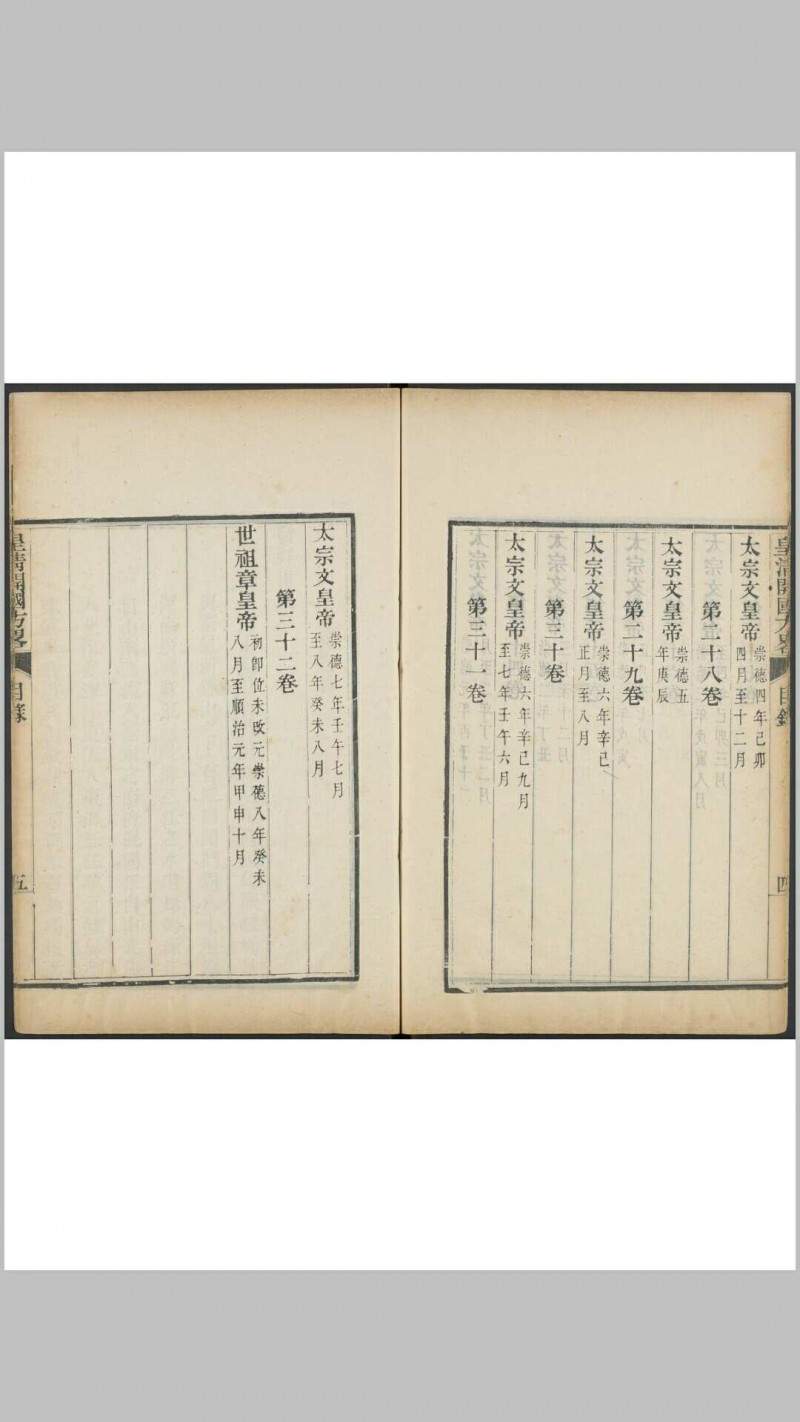 皇清開國方畧 目錄 四
太宗文皇帝 崇德四年己卯
四月至十二月
第二十八卷
太宗文皇帝 崇德五
年庚辰
第二十九卷
太宗文皇帝 崇德六年辛巳
正月至八月
第三十卷
太宗文皇帝 崇德六年辛巳九月
至七年壬午六月
第三十一卷
太宗文皇帝 崇德七年壬午七月
至八年癸未八月
第三十二卷
世祖章皇帝 初卽位未改元崇德八年癸未
八月至順治元年甲申十月
皇清開國方畧 目錄 五